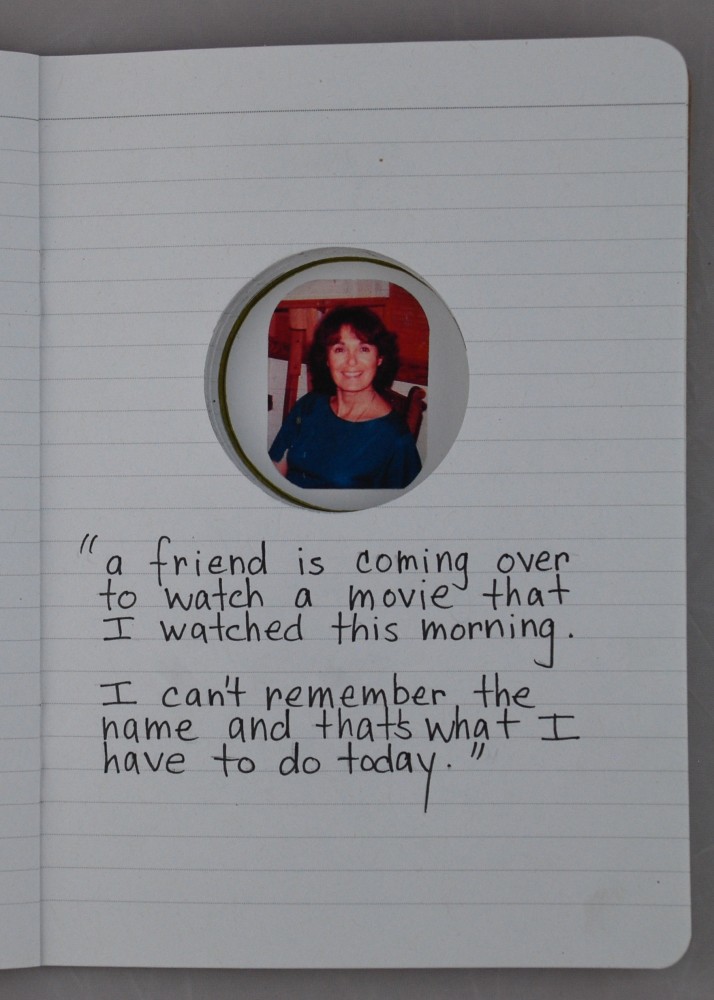 "a friend is coming over
to watch a movie that
I watched this morning.
I can't remember the
name and that's what I
have to do today."